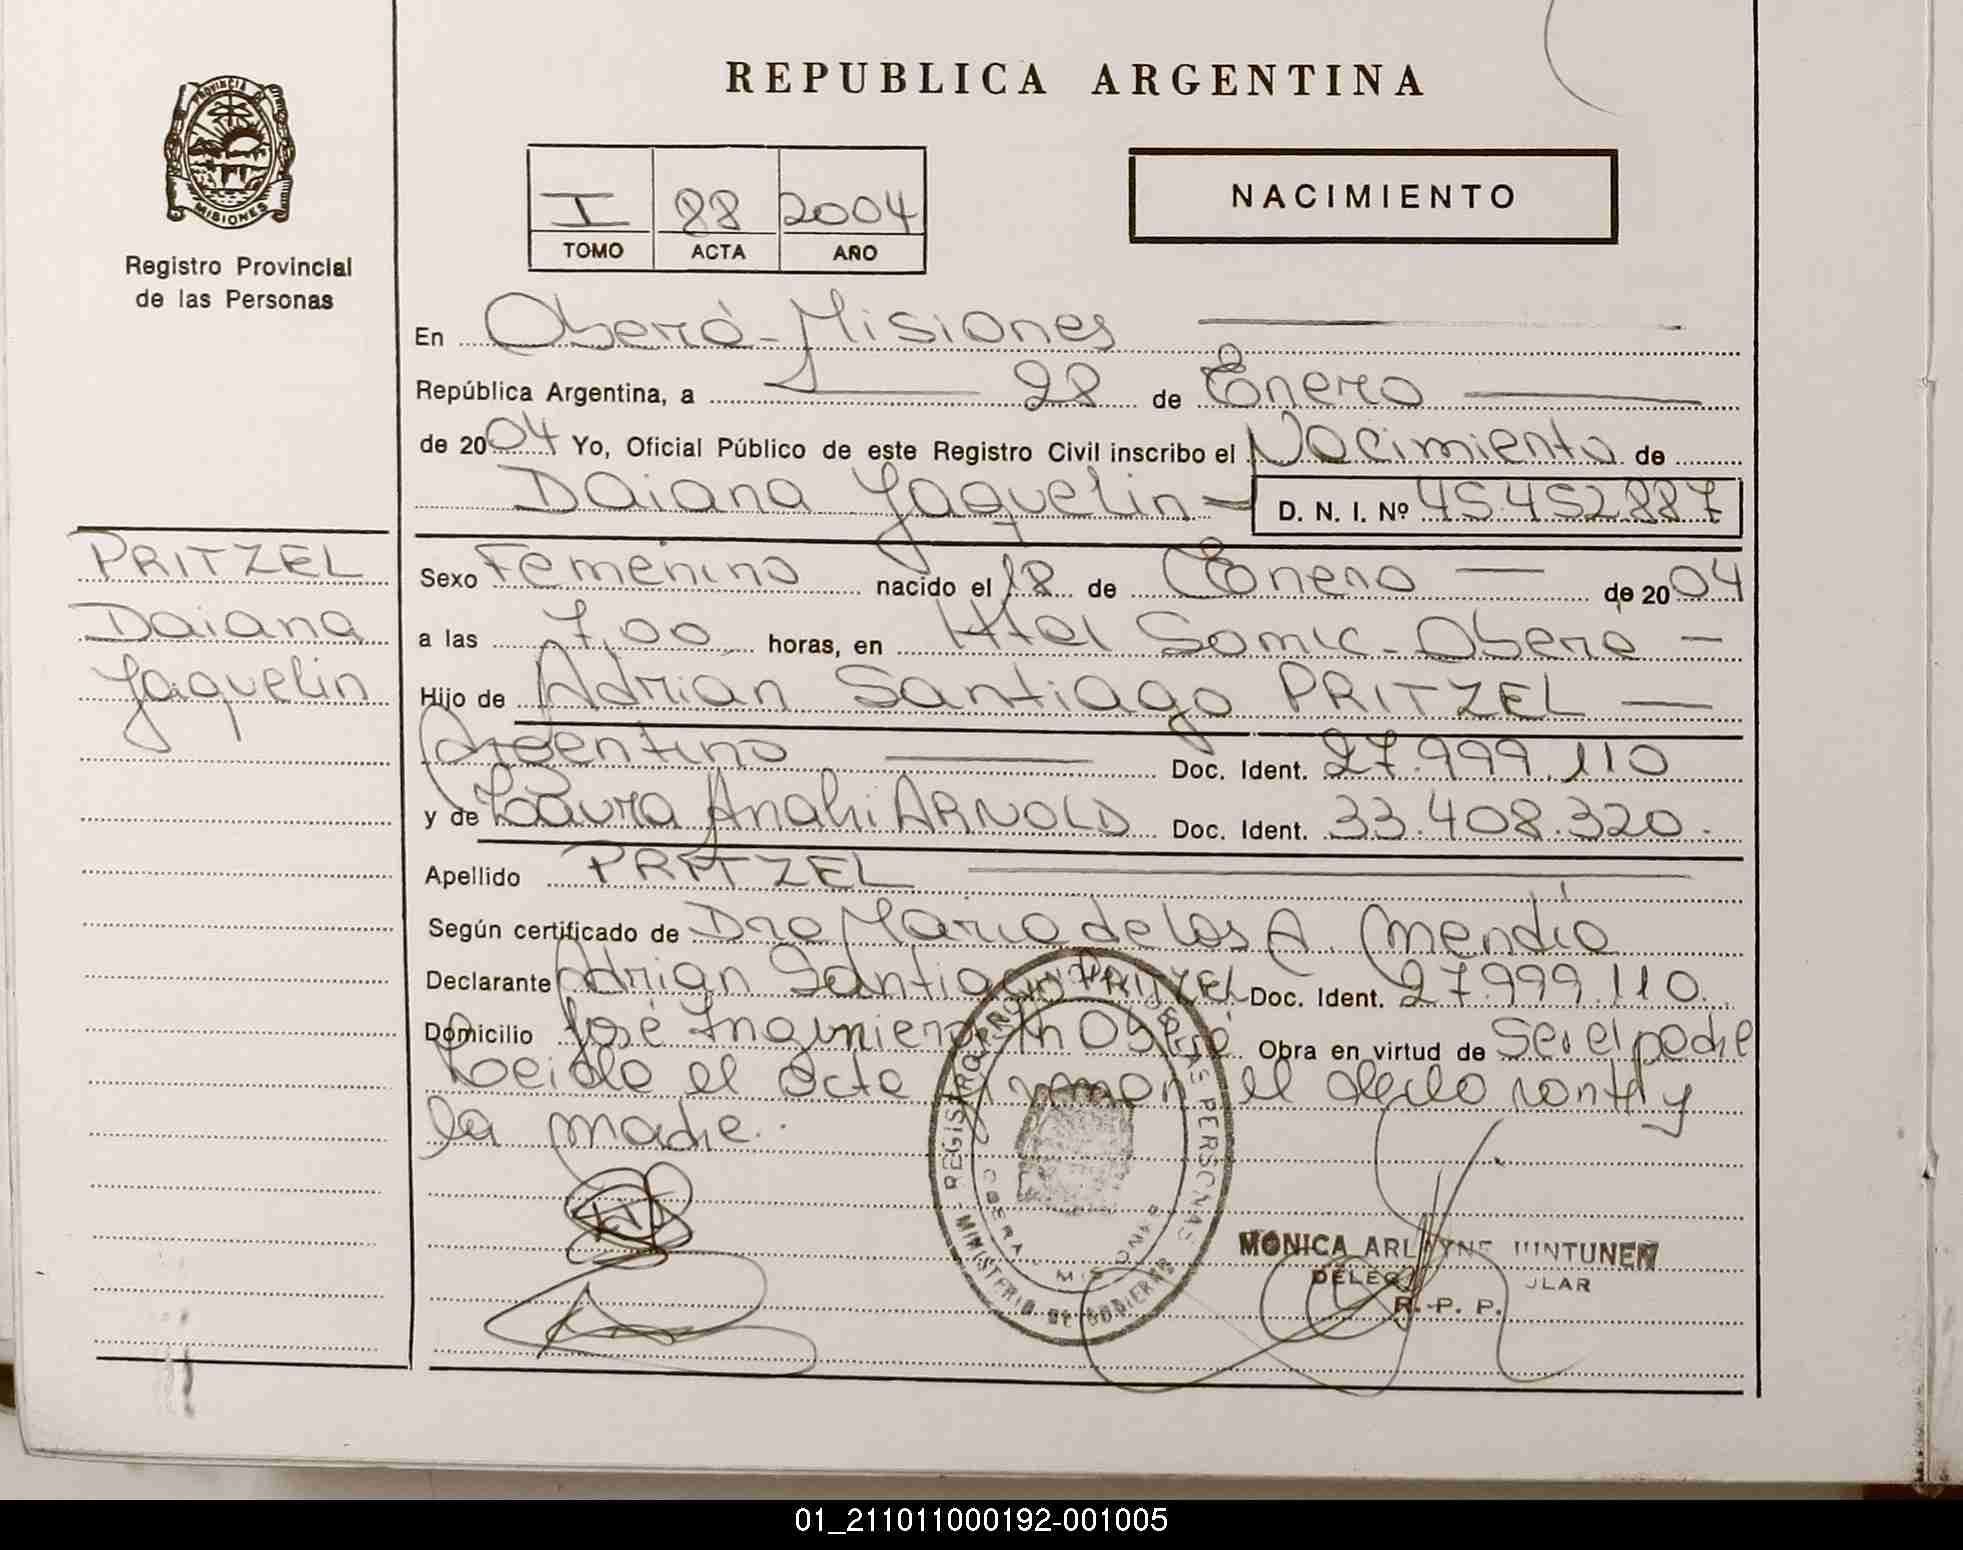 REPUBLICA ARGENTINA
PROVINCIA DE
MISIONES
Registro Provincial
de las Personas
I 88 2004
TOMO ACTA AÑO
NACIMIENTO
En Oberá - Misiones
República Argentina, a 28 de Enero
de 2004 Yo, Oficial Público de este Registro Civil inscribo el Nacimiento de
Daiana Yaquelin D. N. I. Nº 45.452.887
PRITZEL
Daiana
Yaquelin
Sexo Femenino nacido el 18 de Enero de 2004
a las 7,00 horas, en Htal Samic - Oberá
Hijo de Adrian Santiago PRITZEL
Argentino Doc. Ident. 27.999.110
y de Laura Anahi ARNOLD Doc. Ident. 33.408.320.
Apellido PRITZEL
Según certificado de Dra Maria de los A. Mendia
Declarante Adrian Santiago PRITZEL Doc. Ident. 27.999.110.
Domicilio José Ingenieros Oberá Obra en virtud de Ser el padre
Leida el acta firman el declarante y
la madre.
REGISTRO PROVINCIAL DE LAS PERSONAS
MINISTERIO DE GOBIERNO
OBERA MISIONES
MONICA HUNTUNEN
R. P. P.
01_211011000192-001005